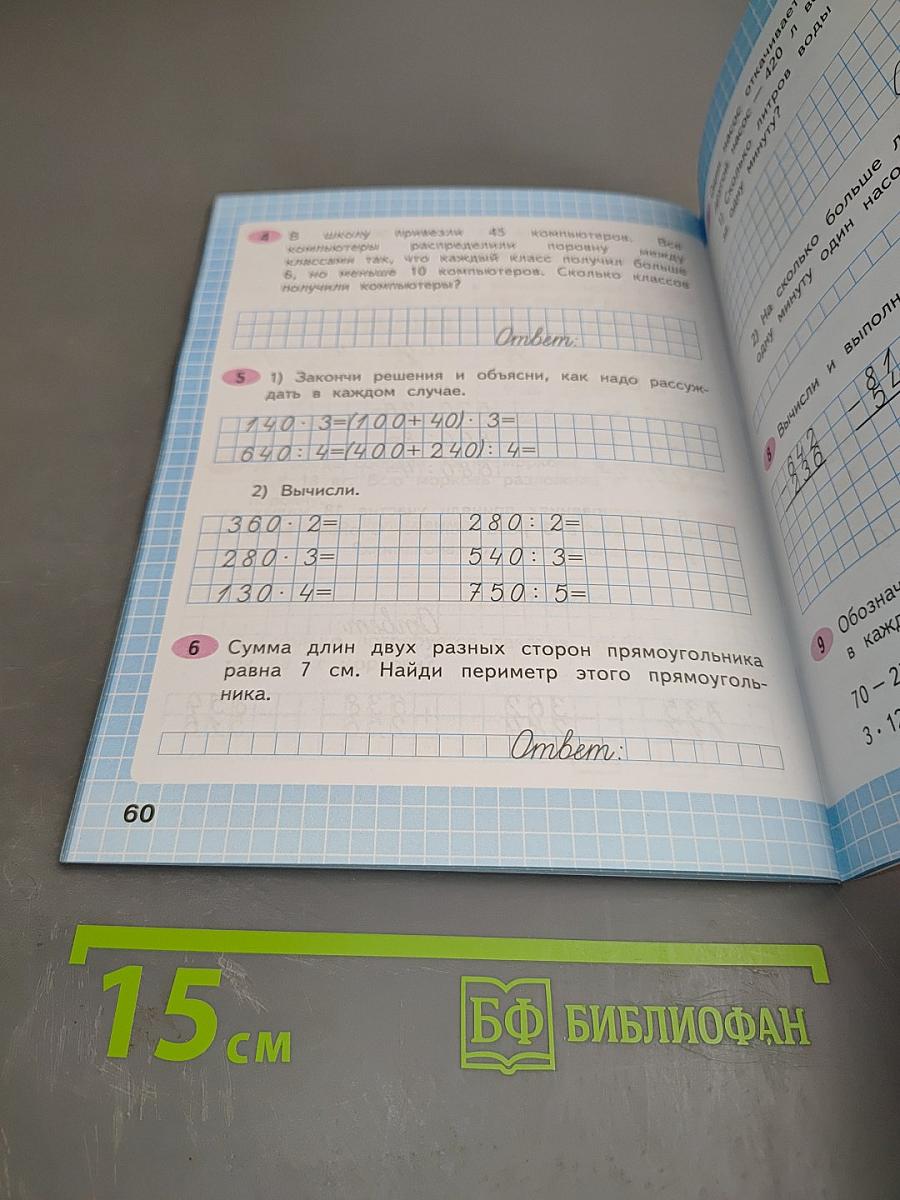 4 В школу привезли 45 компьютеров. Все
компьютеры распределили поровну между
классами так, что каждый класс получил больше
6, но меньше 10 компьютеров. Сколько классов
получили компьютеры?
Ответ:
5 1) Закончи решения и объясни, как надо рассуж-
дать в каждом случае.
140 · 3=(100+40) · 3=
640 : 4=(400+240) : 4=
2) Вычисли.
360 · 2= 280 : 2=
280 · 3= 540 : 3=
130 · 4= 750 : 5=
6 Сумма длин двух разных сторон прямоугольника
равна 7 см. Найди периметр этого прямоуголь-
ника.
Ответ:
60
насос откачивает
насос — 420 л
1) Сколько литров воды
одну минуту?
2) На сколько больше
одну минуту один
8 Вычисли и
81
642
236
9
в
70 –
3 ·
15 см
БФ БИБЛИОФАН